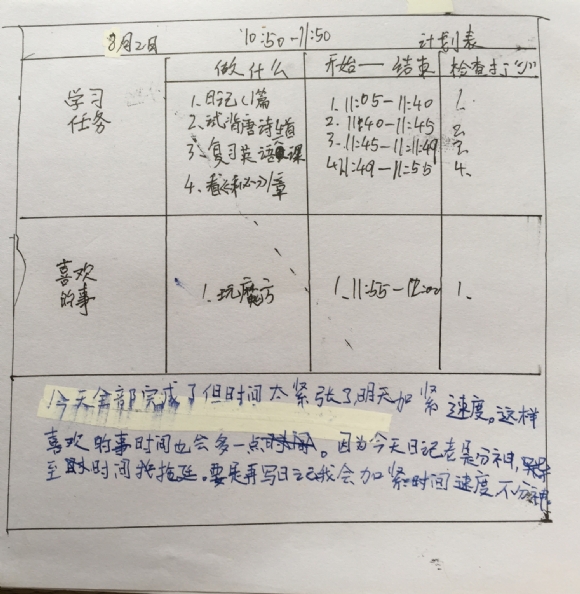 8月2日 10:50-11:50 计划表
做什么 开始— 结束 检查打"√"
学习
任务
1. 日记(1篇
2. 试背唐诗1首
3. 复习英语课
4. 看 1章
1. 11:05-11:40
2. 11:40-11:45
3. 11:45-11:49
4. 11:49-11:55
1.
2.
3.
4.
喜欢
的事
1. 玩魔方
1. 11:55-12:00
1.
今天全部完成了但时间太紧张了明天加紧速度。这样
喜欢的事时间也会多一点。因为今天日记老是分神,
至时间拖延。要是再写日记我会加紧时间速度不分神。